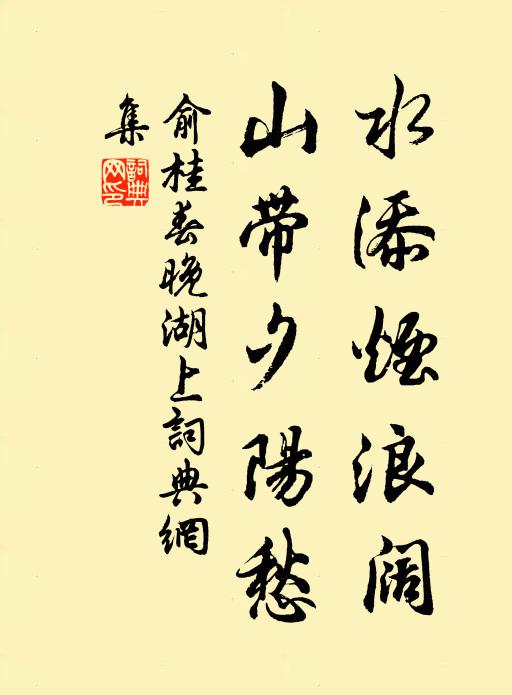 水添煙浪阔
山带夕陽愁
俞桂春晚湖上詞典網
集
詞典网印